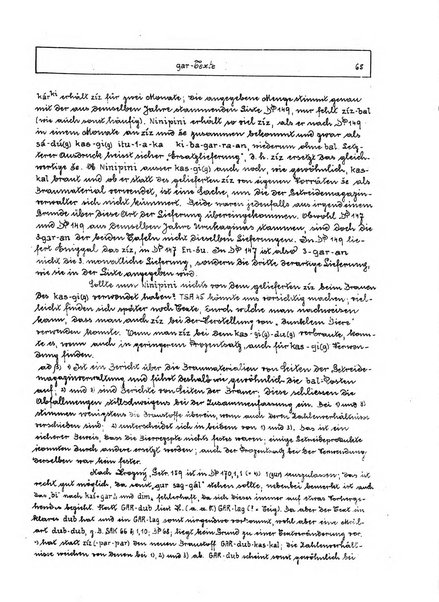 gar-Texte 65
kár^ki erhält zíz für zwei Monate; die angegebene Menge stimmt genau
mit der aus demselben Jahre stammenden Liste DP 149, nur fehlt zíz-bal
(wie auch sonst häufig). Ninipini erhält so viel zíz, als er nach DP 149
in einem Monate an zíz und še zusammen bekommt und zwar als
sá-du₁₁(g) kas-gi(g) itu-1-a-ka ki-ba-gar-ra-an, wiederum ohne bal. Letz-
terer Ausdruck heisst sicher "Ersatzlieferung", d.h. zíz ersetzt das gleich-
wertige še. Ob Ninipini ausser kas-gi(g) auch noch, wie gewöhnlich, kas-
kal braut und ob er statt des gelieferten zíz von eigenen Vorräten še als
Braumaterial verwendet, ist eine Sache, um die der Getreidemagazin-
verwalter sich nicht kümmert. Beide waren jedenfalls aus irgendeinem
Grunde über diese Art der Lieferung übereingekommen. Obwohl DP 147
und DP 149 aus demselben Jahre Urukaginas stammen, sind doch die
gar-an der beiden Tafeln nicht dieselben Lieferungen. In DP 149 lie-
fert Eniggal das zíz, in DP 147 En-bu. In DP 147 ist also 3-gar-an
nicht die 3. monatliche Lieferung, sondern die dritte derartige Lieferung,
wie sie in der Liste angegeben wird.
Sollte nun Ninipini nichts von dem gelieferten zíz beim Brauen
des kas-gi(g) verwendet haben? TSA 45 könnte uns vorsichtig machen; viel-
leicht finden sich später noch Texte, durch welche man nachweisen
kann, dass man auch zíz bei der Herstellung von "dunklem Bier"
verwenden konnte. Wenn man zíz bei dem kas-gi(g)-du(g) verbraute, konn-
te es, wenn auch in geringem Prozentsatz, auch für kas-gi(g) Verwen-
dung finden.
ad β: 1) Ist ein Bericht über die Braumaterialien von Seiten der Getreide-
magazinverwaltung und führt deshalb wie gewöhnlich die bal-Posten
auf. 2) und 3) sind Berichte von Seiten der Brauer. Diese schliessen die
Abfallmengen stillschweigend bei der Zusammenfassung ein. Bei 1) und 3)
stimmen wenigstens die Braustoffe überein, wenn auch deren Zahlenverhältnisse
verschieden sind. 2) unterscheidet sich in beidem von 1) und 3). Das ist ein
sicherer Beweis, dass die Bierrezepte nichts festes waren: einige Getreideprodukte
konnten durch andere ersetzt werden; auch der Prozentsatz bei der Verwendung
derselben war kein fester.
Nach Hrozný, Getr. 159 ist in DP 170,1,1 (= 4) 1 (gur) auszulassen; das ist
recht gut möglich, da sonst "gur sag-gál" stehen sollte, nebenbei bemerkt ist auch
das "bi" nach kas-gar₅ und dim₄ fehlerhaft, da sich dieses immer auf etwas Vorherge-
hendes bezieht. Statt GAR-dub lies H. (a.a.O.) GAR-lag (= Teig). Da aber der Text ein
klares dub hat und ein GAR-lag sonst nirgendwo vorkommt, wohl aber eine Mehl-
art dub-dub, z.B. SAK 66 & 1,10; DP 68, liegt kein Grund zu einer Textveränderung vor.
1) hat statt zíz (-par-par) den neuen Braustoff GAR-dub-kas-kal; die Zahlenverhält-
nisse weichen von denen bei 1), 2) und 3) ab. GAR-dub scheint sonst gewöhnlich bei